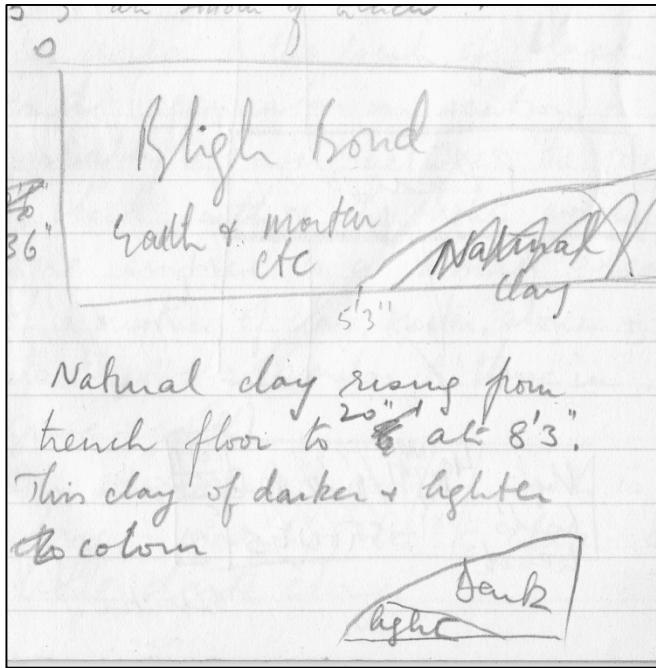 0
Bligh Bond
Earth + mortar
etc
36"
Natural
Clay
5'3"
Natural clay rising from
trench floor to 20" at 8'3".
This clay of darker + lighter
colour
Dark
light